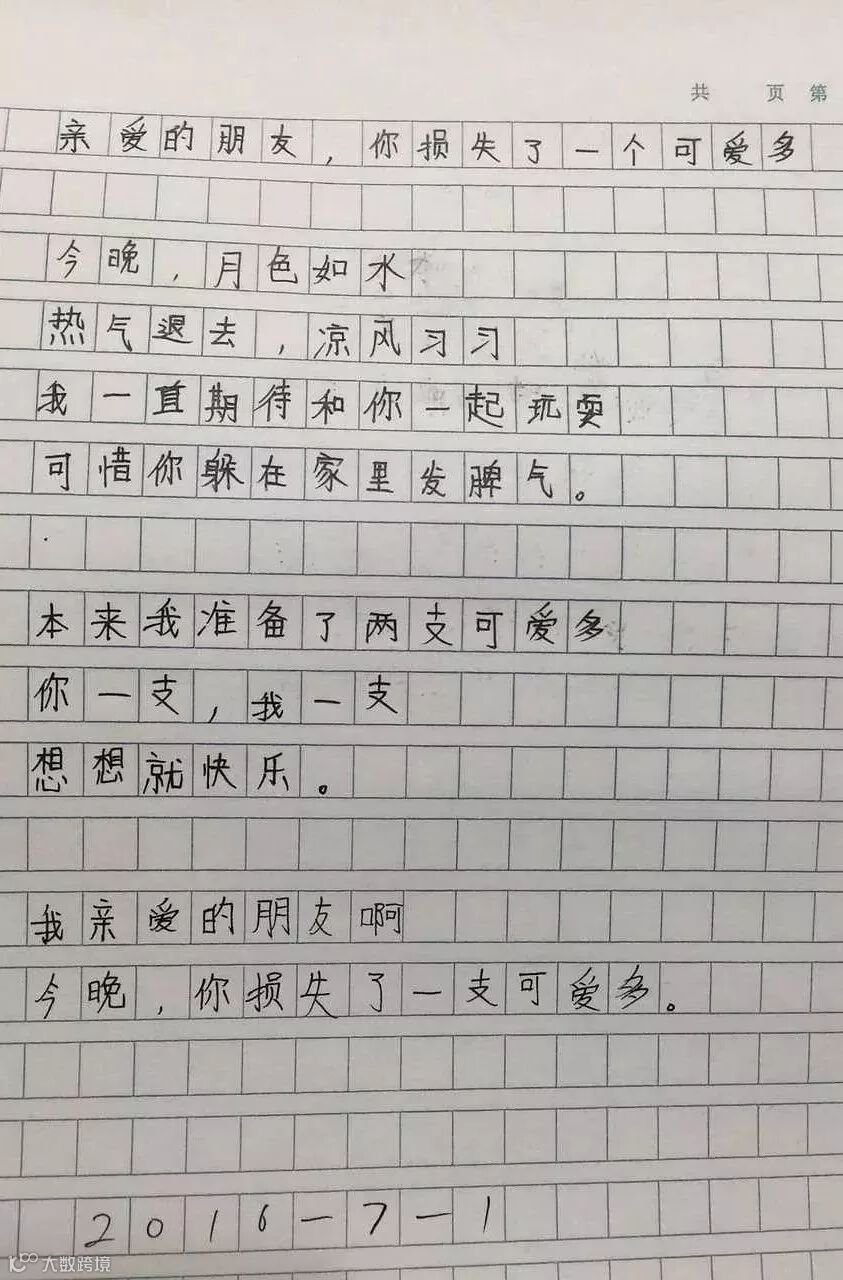 共 页 第
亲爱的朋友，你损失了一个可爱多
今晚，月色如水
热气退去，凉风习习
我一直期待和你一起玩耍
可惜你躲在家里发脾气。
本来我准备了两支可爱多
你一支，我一支
想想就快乐。
我亲爱的朋友啊
今晚，你损失了一支可爱多。
2016-7-1
大数跨境